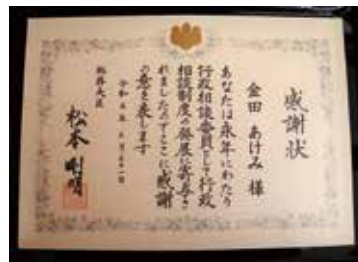 感謝状
金田 あけみ 様
あなたは永年にわたり
行政相談委員として行政
相談制度の発展に寄与さ
れましたのでここに感謝
の意を表します
令和五年
総務大臣
松本剛明